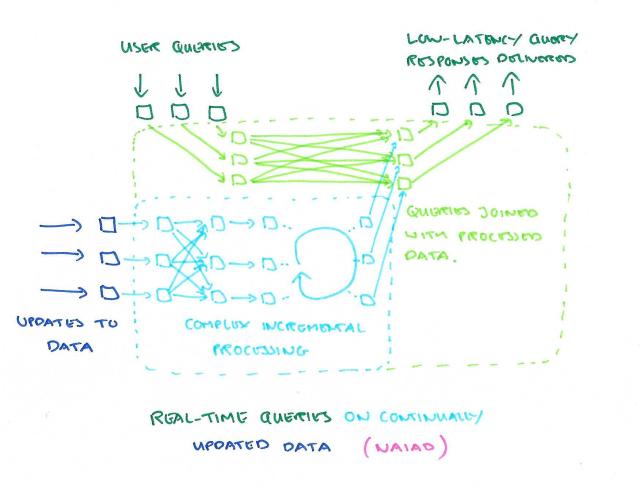 USER QUERIES
LOW-LATENCY QUERY
RESPONSES DELIVERED
QUERIES JOINED
WITH PROCESSED
DATA.
UPDATES TO
DATA
COMPLEX INCREMENTAL
PROCESSING
REAL-TIME QUERIES ON CONTINUALLY
UPDATED DATA (NAIAD)